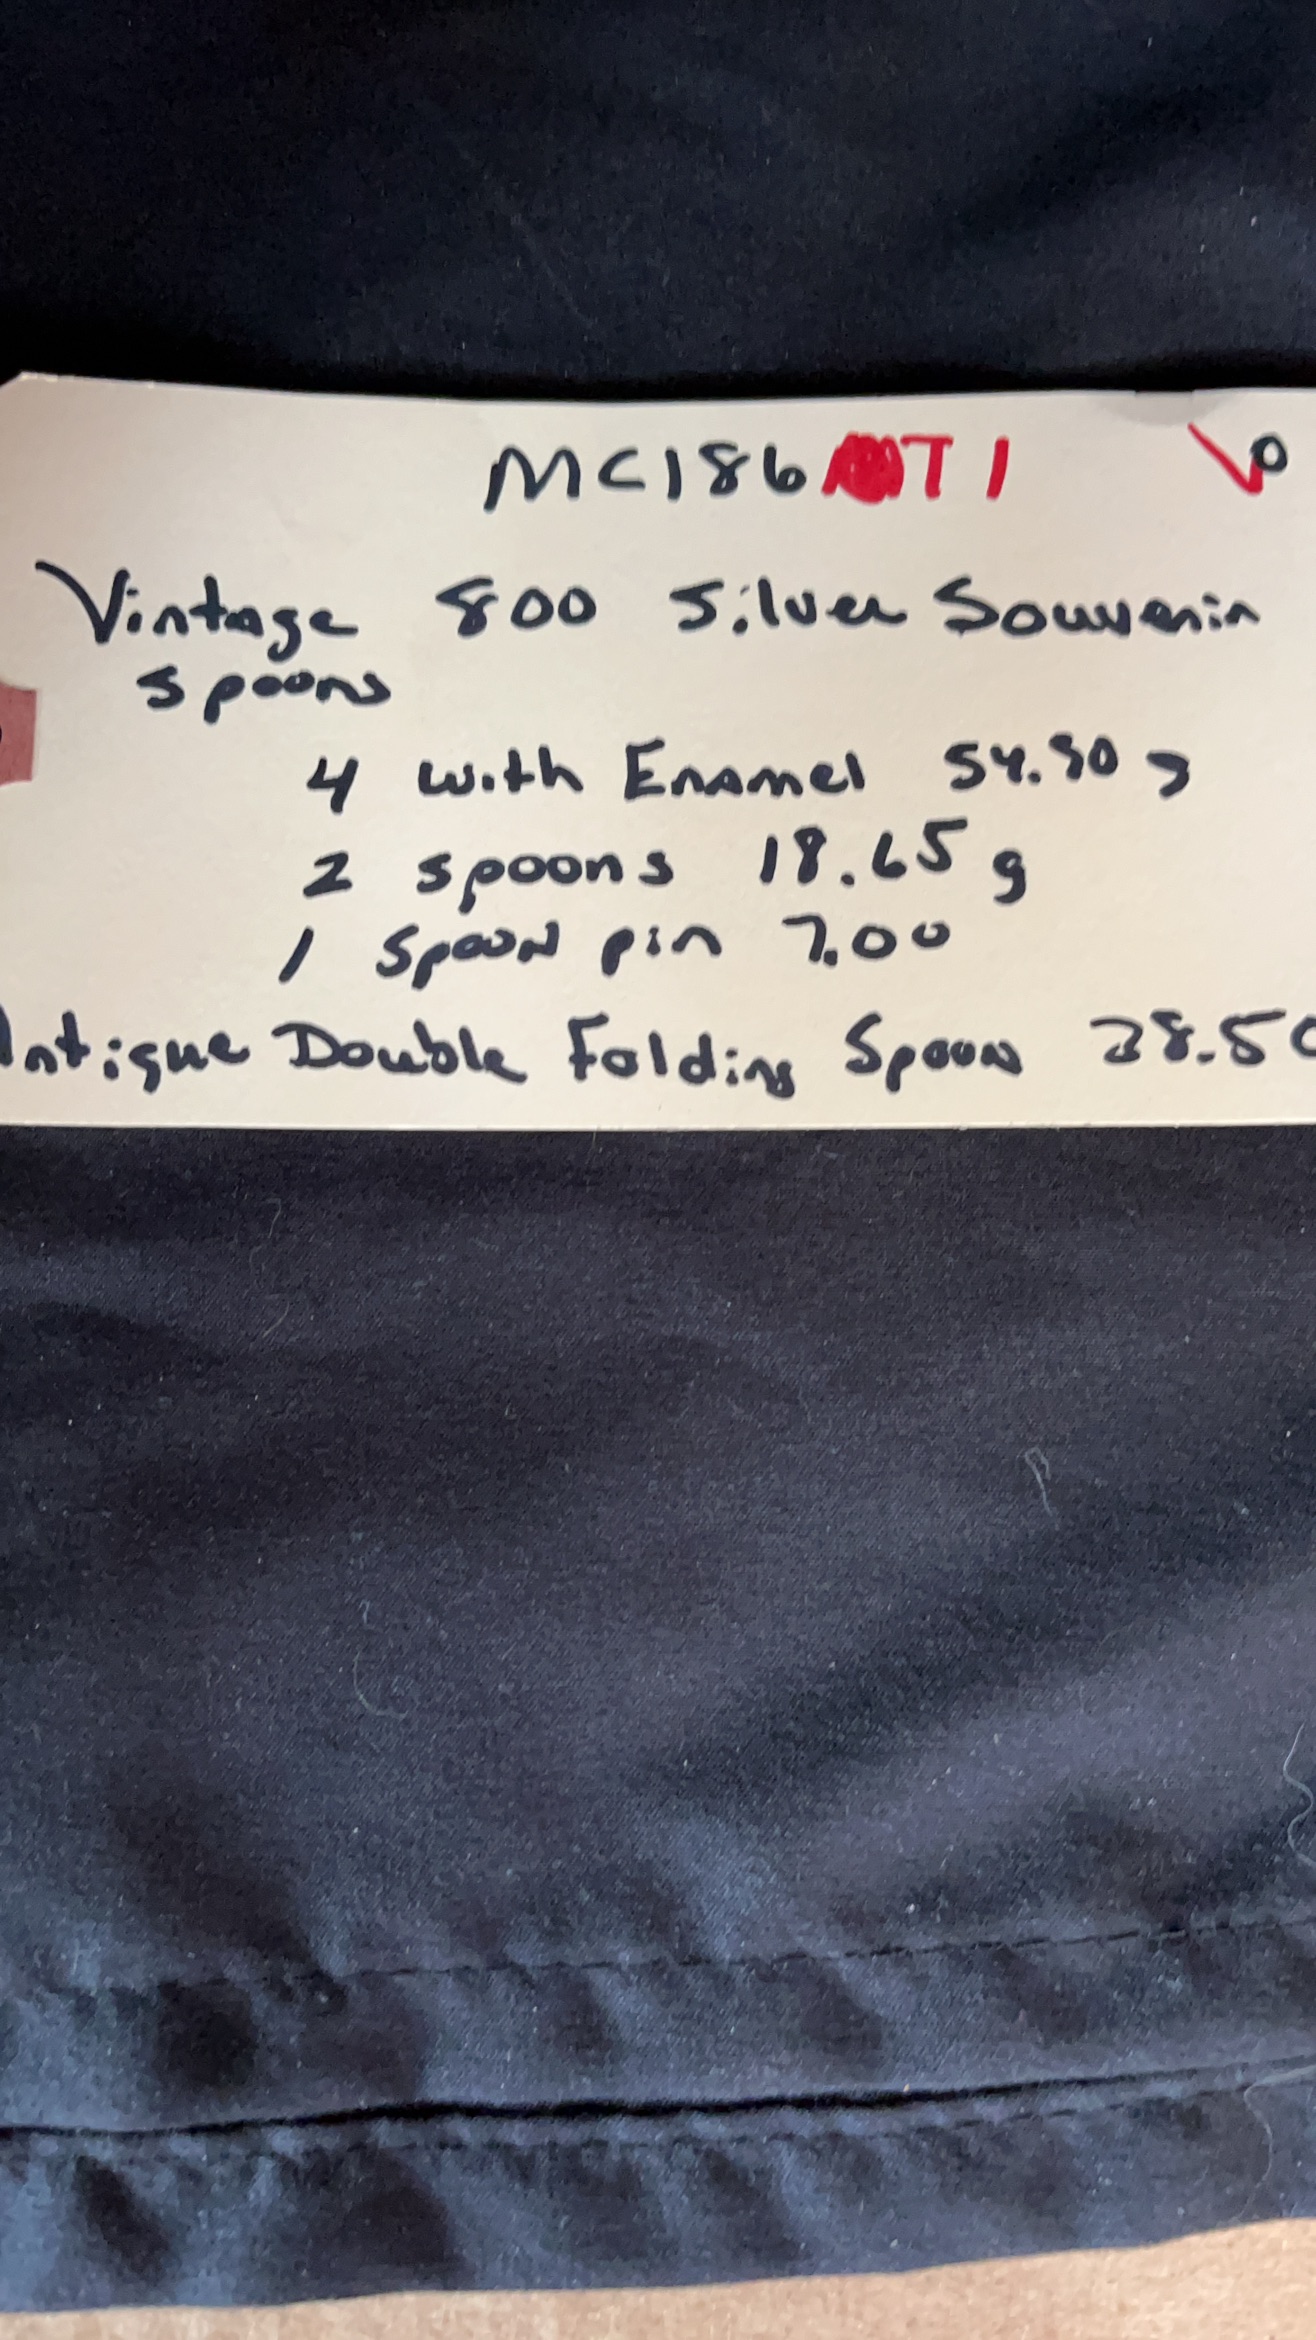 MC186 T1
Vintage 800 Silver Souvenir
spoons
4 with Enamel 54.90 g
2 spoons 18.65 g
1 Spoon pin 7.00
Antique Double Folding Spoon